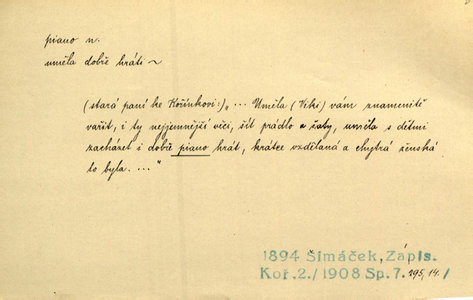 piano n.
uměla dobře hráti ~
(stará paní ke Kořínkovi:) „... Uměla (Viki) vám znamenitě
vařit, i ty nejjemnější věci, šít prádlo a šaty, uměla s dětmi
zacházet i dobře piano hrát, krátce vzdělaná a chytrá ženská
to byla. ..."
1894 Šimáček, Zápis.
Koř.2./1908 Sp.7. 195,14./